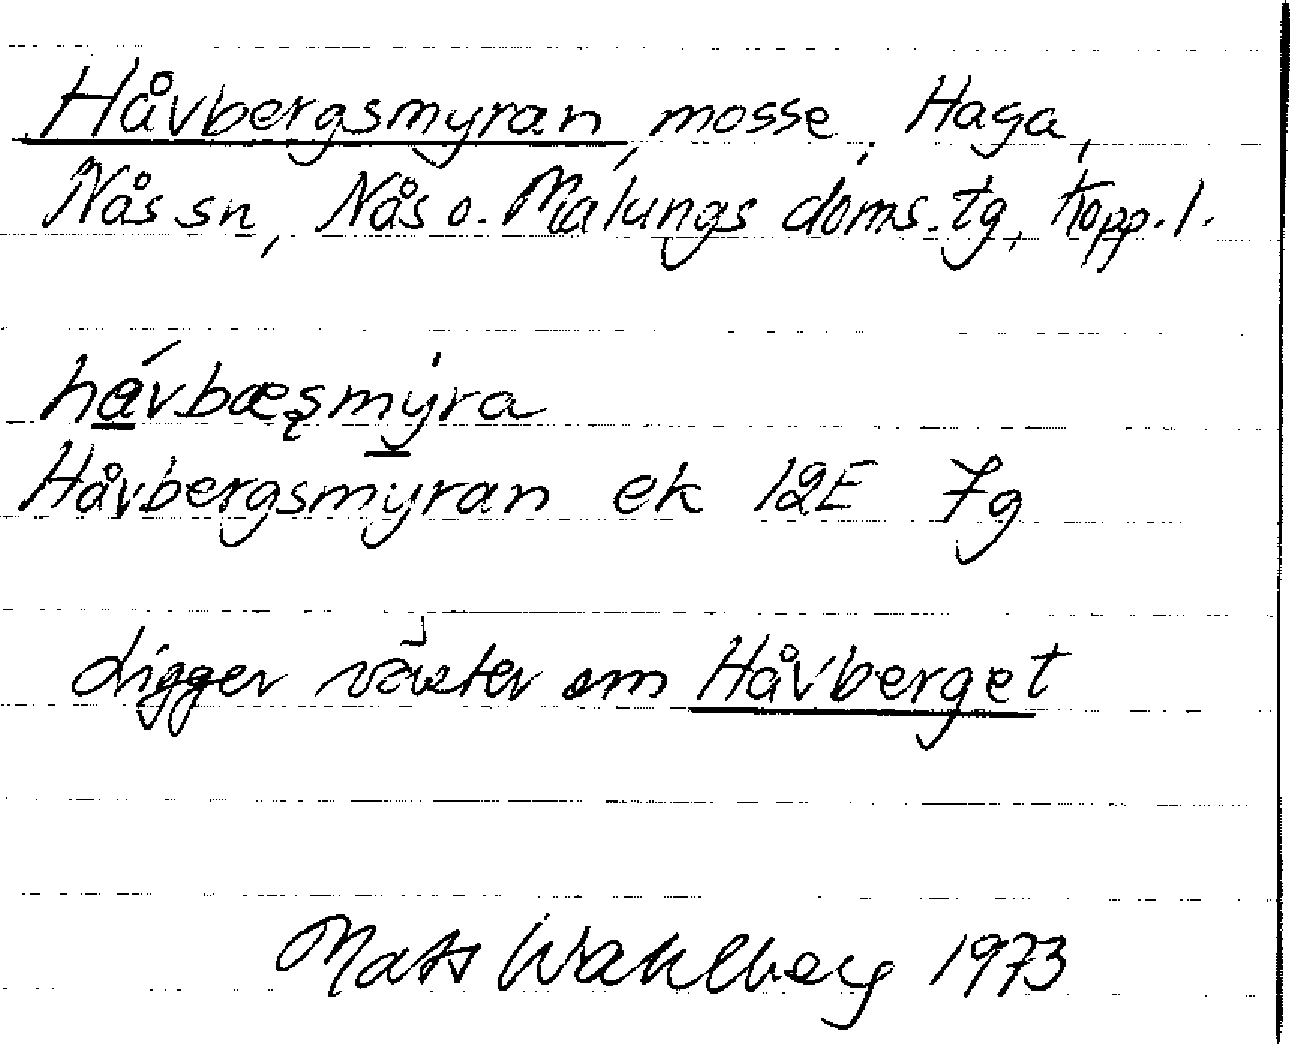 Håvbergsmyran, mosse, Haga,
Nås sn, Nås o. Malungs doms.tg, Kopp.l.
hávbæʂmýra
Håvbergsmyran ek 12E 7g
ligger väster om Håvberget
Mats Wahlberg 1973